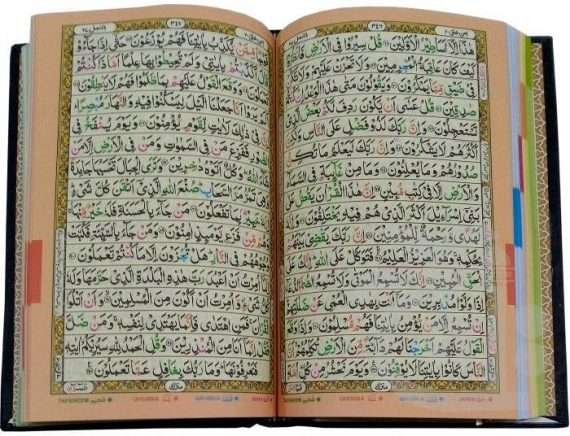 هٰذَآ اِلَّآ اَسَاطِيْرُ الْاَوَّلِيْنَ قُلْ سِيْرُوْا فِى الْاَرْضِ فَانْظُرُوْا
كَيْفَ كَانَ عَاقِبَةُ الْمُجْرِمِيْنَ وَلَا تَحْزَنْ عَلَيْهِمْ وَلَا تَكُنْ
فِيْ ضَيْقٍ مِّمَّا يَمْكُرُوْنَ وَيَقُوْلُوْنَ مَتٰى هٰذَا الْوَعْدُ اِنْ كُنْتُمْ
صٰدِقِيْنَ قُلْ عَسٰٓى اَنْ يَّكُوْنَ رَدِفَ لَكُمْ بَعْضُ الَّذِيْ
تَسْتَعْجِلُوْنَ وَاِنَّ رَبَّكَ لَذُوْ فَضْلٍ عَلَى النَّاسِ وَلٰكِنَّ
اَكْثَرَهُمْ لَا يَشْكُرُوْنَ وَاِنَّ رَبَّكَ لَيَعْلَمُ مَا تُكِنُّ
صُدُوْرُهُمْ وَمَا يُعْلِنُوْنَ وَمَا مِنْ غَآئِبَةٍ فِى السَّمَآءِ
وَالْاَرْضِ اِلَّا فِيْ كِتٰبٍ مُّبِيْنٍ اِنَّ هٰذَا الْقُرْاٰنَ يَقُصُّ عَلٰى
بَنِيْٓ اِسْرَآءِيْلَ اَكْثَرَ الَّذِيْ هُمْ فِيْهِ يَخْتَلِفُوْنَ وَاِنَّهٗ
لَهُدًى وَّرَحْمَةٌ لِّلْمُؤْمِنِيْنَ اِنَّ رَبَّكَ يَقْضِيْ بَيْنَهُمْ
بِحُكْمِهٖ وَهُوَ الْعَزِيْزُ الْعَلِيْمُ فَتَوَكَّلْ عَلَى اللّٰهِ اِنَّكَ عَلَى
الْحَقِّ الْمُبِيْنِ اِنَّكَ لَا تُسْمِعُ الْمَوْتٰى وَلَا تُسْمِعُ الصُّمَّ الدُّعَآءَ
اِذَا وَلَّوْا مُدْبِرِيْنَ وَمَآ اَنْتَ بِهٰدِى الْعُمْىِ عَنْ ضَلٰلَتِهِمْ
اِنْ تُسْمِعُ اِلَّا مَنْ يُّؤْمِنُ بِاٰيٰتِنَا فَهُمْ مُّسْلِمُوْنَ وَاِذَا وَقَعَ
الْقَوْلُ عَلَيْهِمْ اَخْرَجْنَا لَهُمْ دَآبَّةً مِّنَ الْاَرْضِ تُكَلِّمُهُمْ اَنَّ
النَّاسَ كَانُوْا بِاٰيٰتِنَا لَا يُوْقِنُوْنَ وَيَوْمَ نَحْشُرُ مِنْ كُلِّ اُمَّةٍ
فَوْجًا مِّمَّنْ يُّكَذِّبُ بِاٰيٰتِنَا فَهُمْ يُوْزَعُوْنَ حَتّٰٓى اِذَا جَآءُوْ
قَالَ اَكَذَّبْتُمْ بِاٰيٰتِيْ وَلَمْ تُحِيْطُوْا بِهَا عِلْمًا اَمَّاذَا كُنْتُمْ
تَعْمَلُوْنَ وَوَقَعَ الْقَوْلُ عَلَيْهِمْ بِمَا ظَلَمُوْا فَهُمْ لَا يَنْطِقُوْنَ
اَلَمْ يَرَوْا اَنَّا جَعَلْنَا الَّيْلَ لِيَسْكُنُوْا فِيْهِ وَالنَّهَارَ مُبْصِرًا
اِنَّ فِيْ ذٰلِكَ لَاٰيٰتٍ لِّقَوْمٍ يُّؤْمِنُوْنَ وَيَوْمَ يُنْفَخُ فِى
الصُّوْرِ فَفَزِعَ مَنْ فِى السَّمٰوٰتِ وَمَنْ فِى الْاَرْضِ اِلَّا مَنْ
شَآءَ اللّٰهُ وَكُلٌّ اَتَوْهُ دٰخِرِيْنَ وَتَرَى الْجِبَالَ تَحْسَبُهَا جَامِدَةً
وَّهِىَ تَمُرُّ مَرَّ السَّحَابِ صُنْعَ اللّٰهِ الَّذِيْٓ اَتْقَنَ كُلَّ شَىْءٍ اِنَّهٗ
خَبِيْرٌۢ بِمَا تَفْعَلُوْنَ مَنْ جَآءَ بِالْحَسَنَةِ فَلَهٗ خَيْرٌ مِّنْهَا
وَهُمْ مِّنْ فَزَعٍ يَّوْمَئِذٍ اٰمِنُوْنَ وَمَنْ جَآءَ بِالسَّيِّئَةِ فَكُبَّتْ
وُجُوْهُهُمْ فِى النَّارِ هَلْ تُجْزَوْنَ اِلَّا مَا كُنْتُمْ تَعْمَلُوْنَ
اِنَّمَآ اُمِرْتُ اَنْ اَعْبُدَ رَبَّ هٰذِهِ الْبَلْدَةِ الَّذِيْ حَرَّمَهَا وَلَهٗ
كُلُّ شَىْءٍ وَّاُمِرْتُ اَنْ اَكُوْنَ مِنَ الْمُسْلِمِيْنَ وَاَنْ اَتْلُوَا
الْقُرْاٰنَ فَمَنِ اهْتَدٰى فَاِنَّمَا يَهْتَدِيْ لِنَفْسِهٖ وَمَنْ ضَلَّ
فَقُلْ اِنَّمَآ اَنَا مِنَ الْمُنْذِرِيْنَ وَقُلِ الْحَمْدُ لِلّٰهِ سَيُرِيْكُمْ اٰيٰتِهٖ
فَتَعْرِفُوْنَهَا وَمَا رَبُّكَ بِغَافِلٍ عَمَّا تَعْمَلُوْنَ